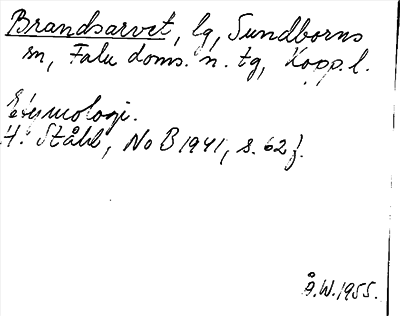 Brandsarvet, lg, Sundborns
sn, Falu doms. n. tg, Kopp. l.
Etymologi.
H. Ståhl, NoB 1941, s. 62 f.
Å.W. 1955.